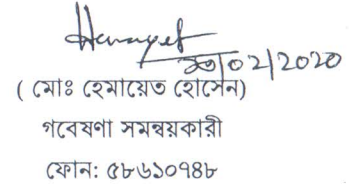 Hemayet
30/02/2020
( মোঃ হেমায়েত হোসেন)
গবেষণা সমন্বয়কারী
ফোন: ৫৮৬১০৭৪৮